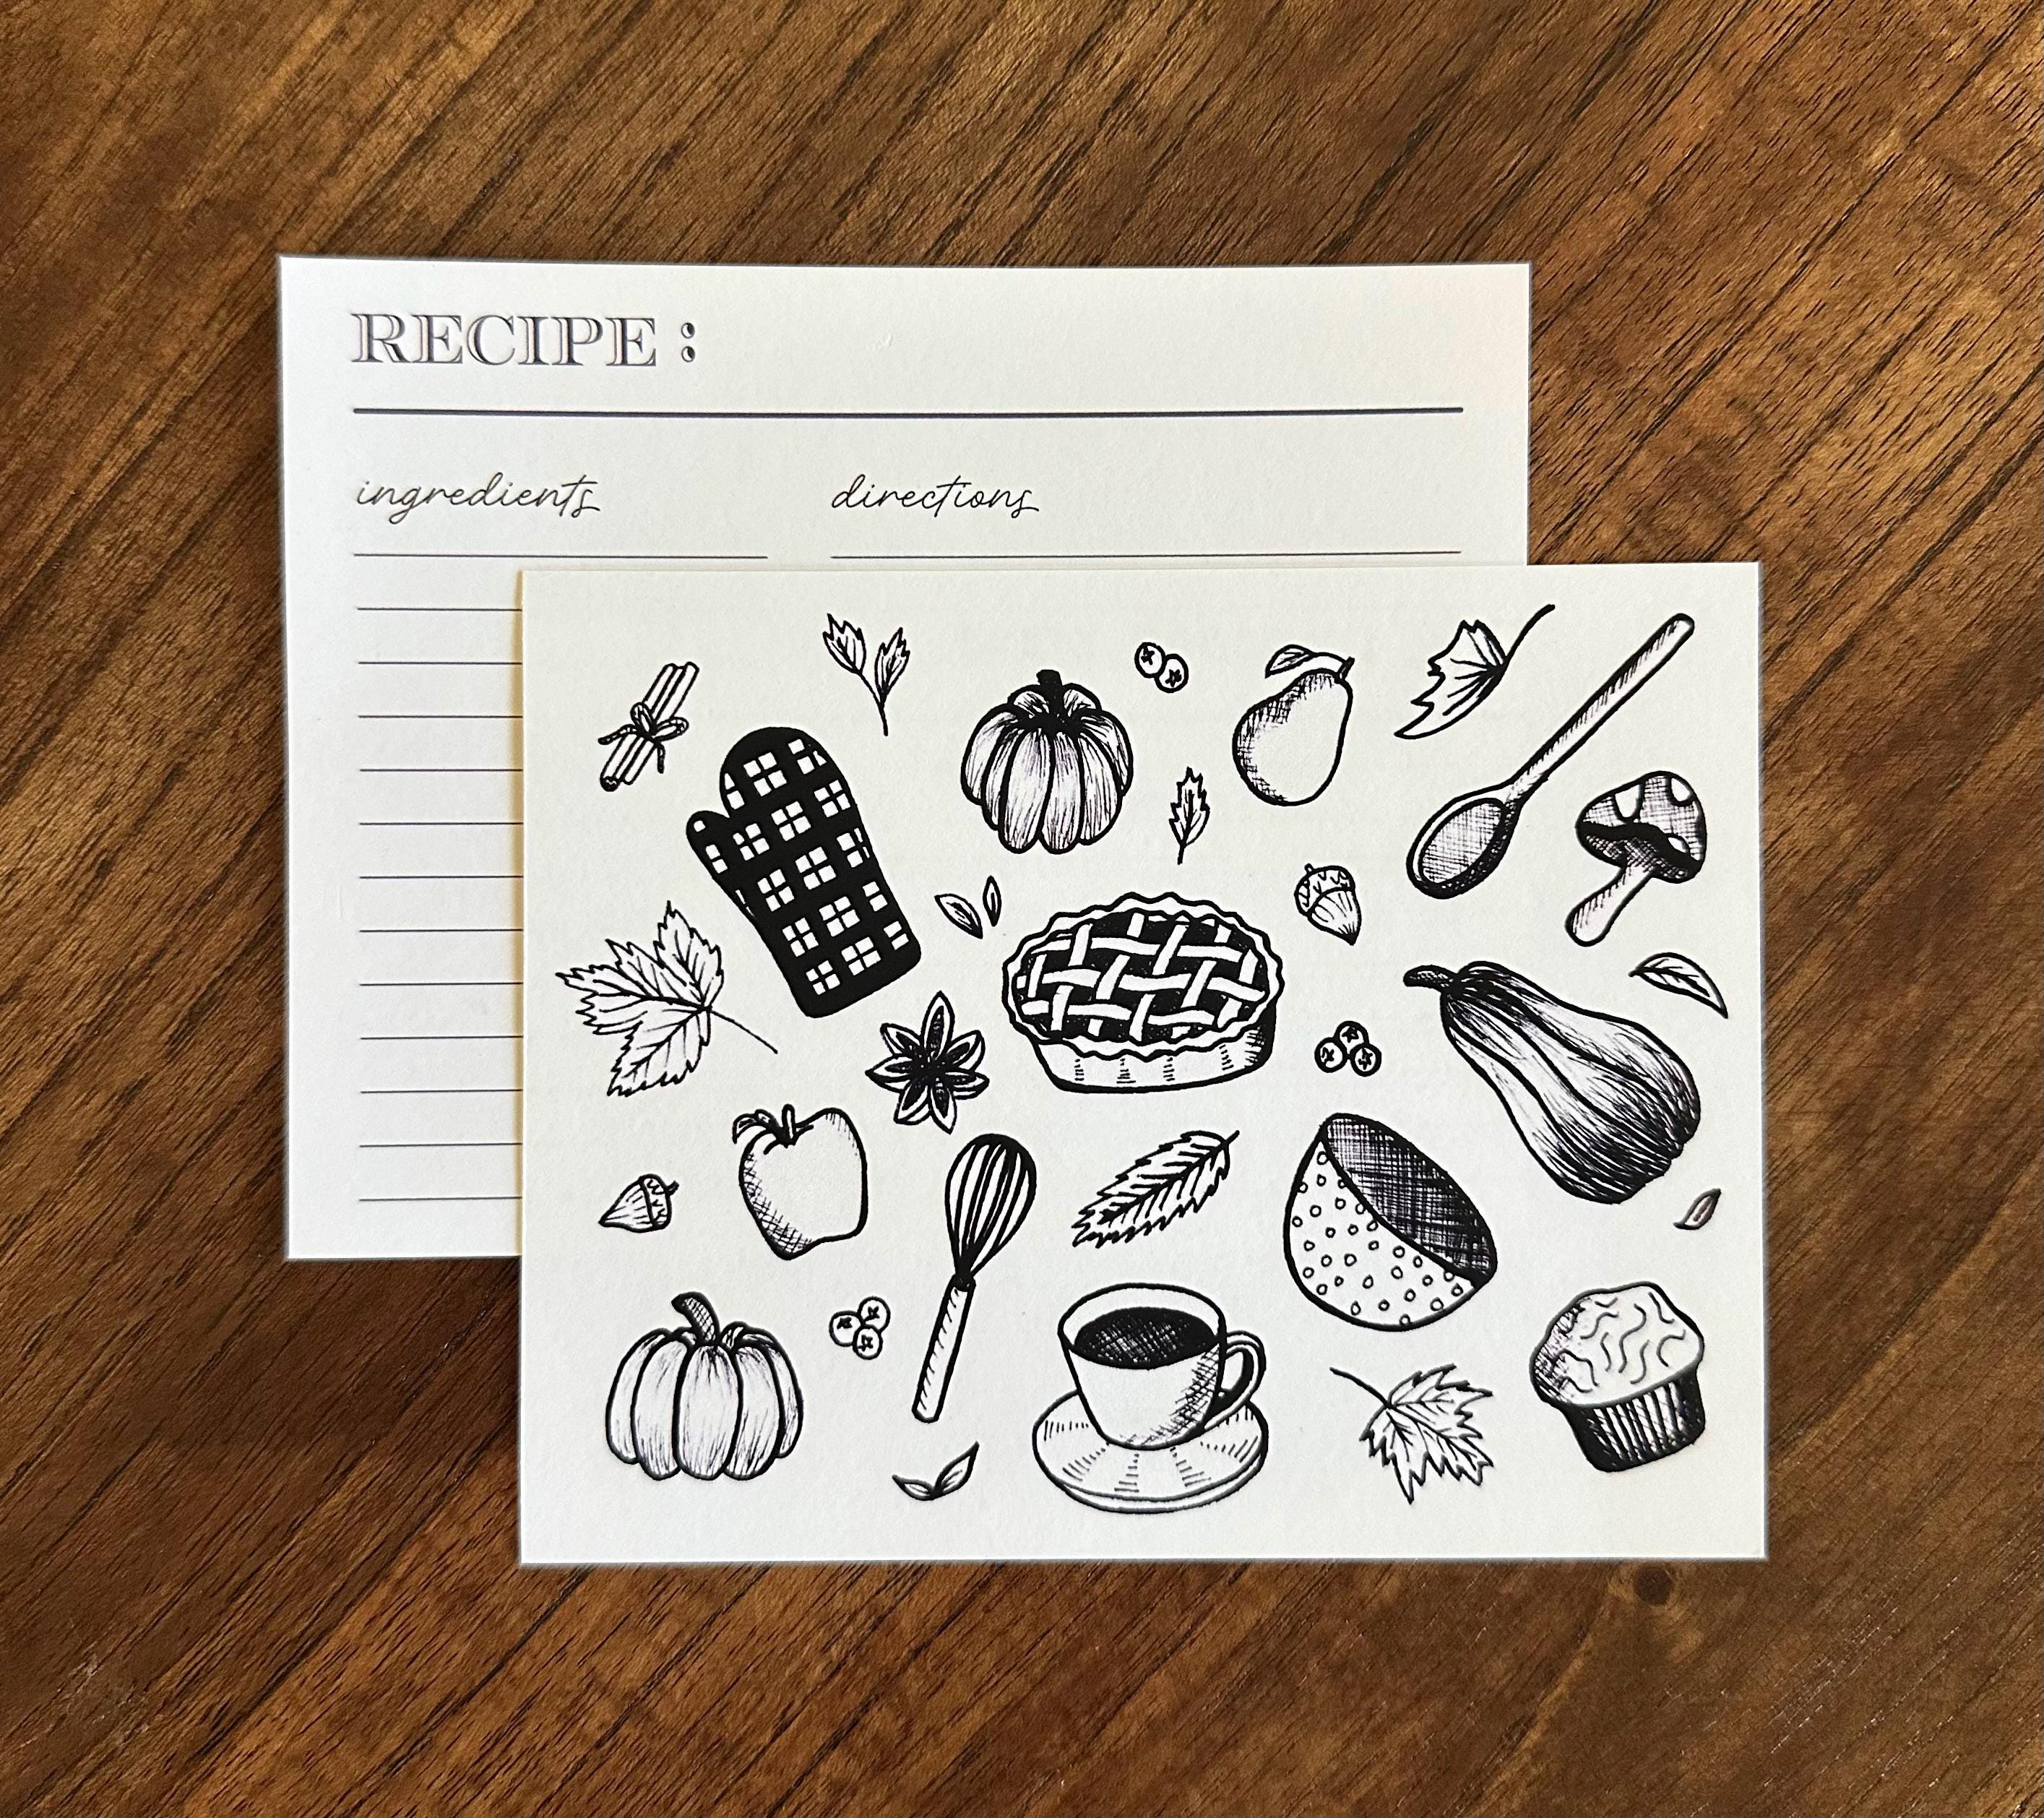 RECIPE :
ingredients directions